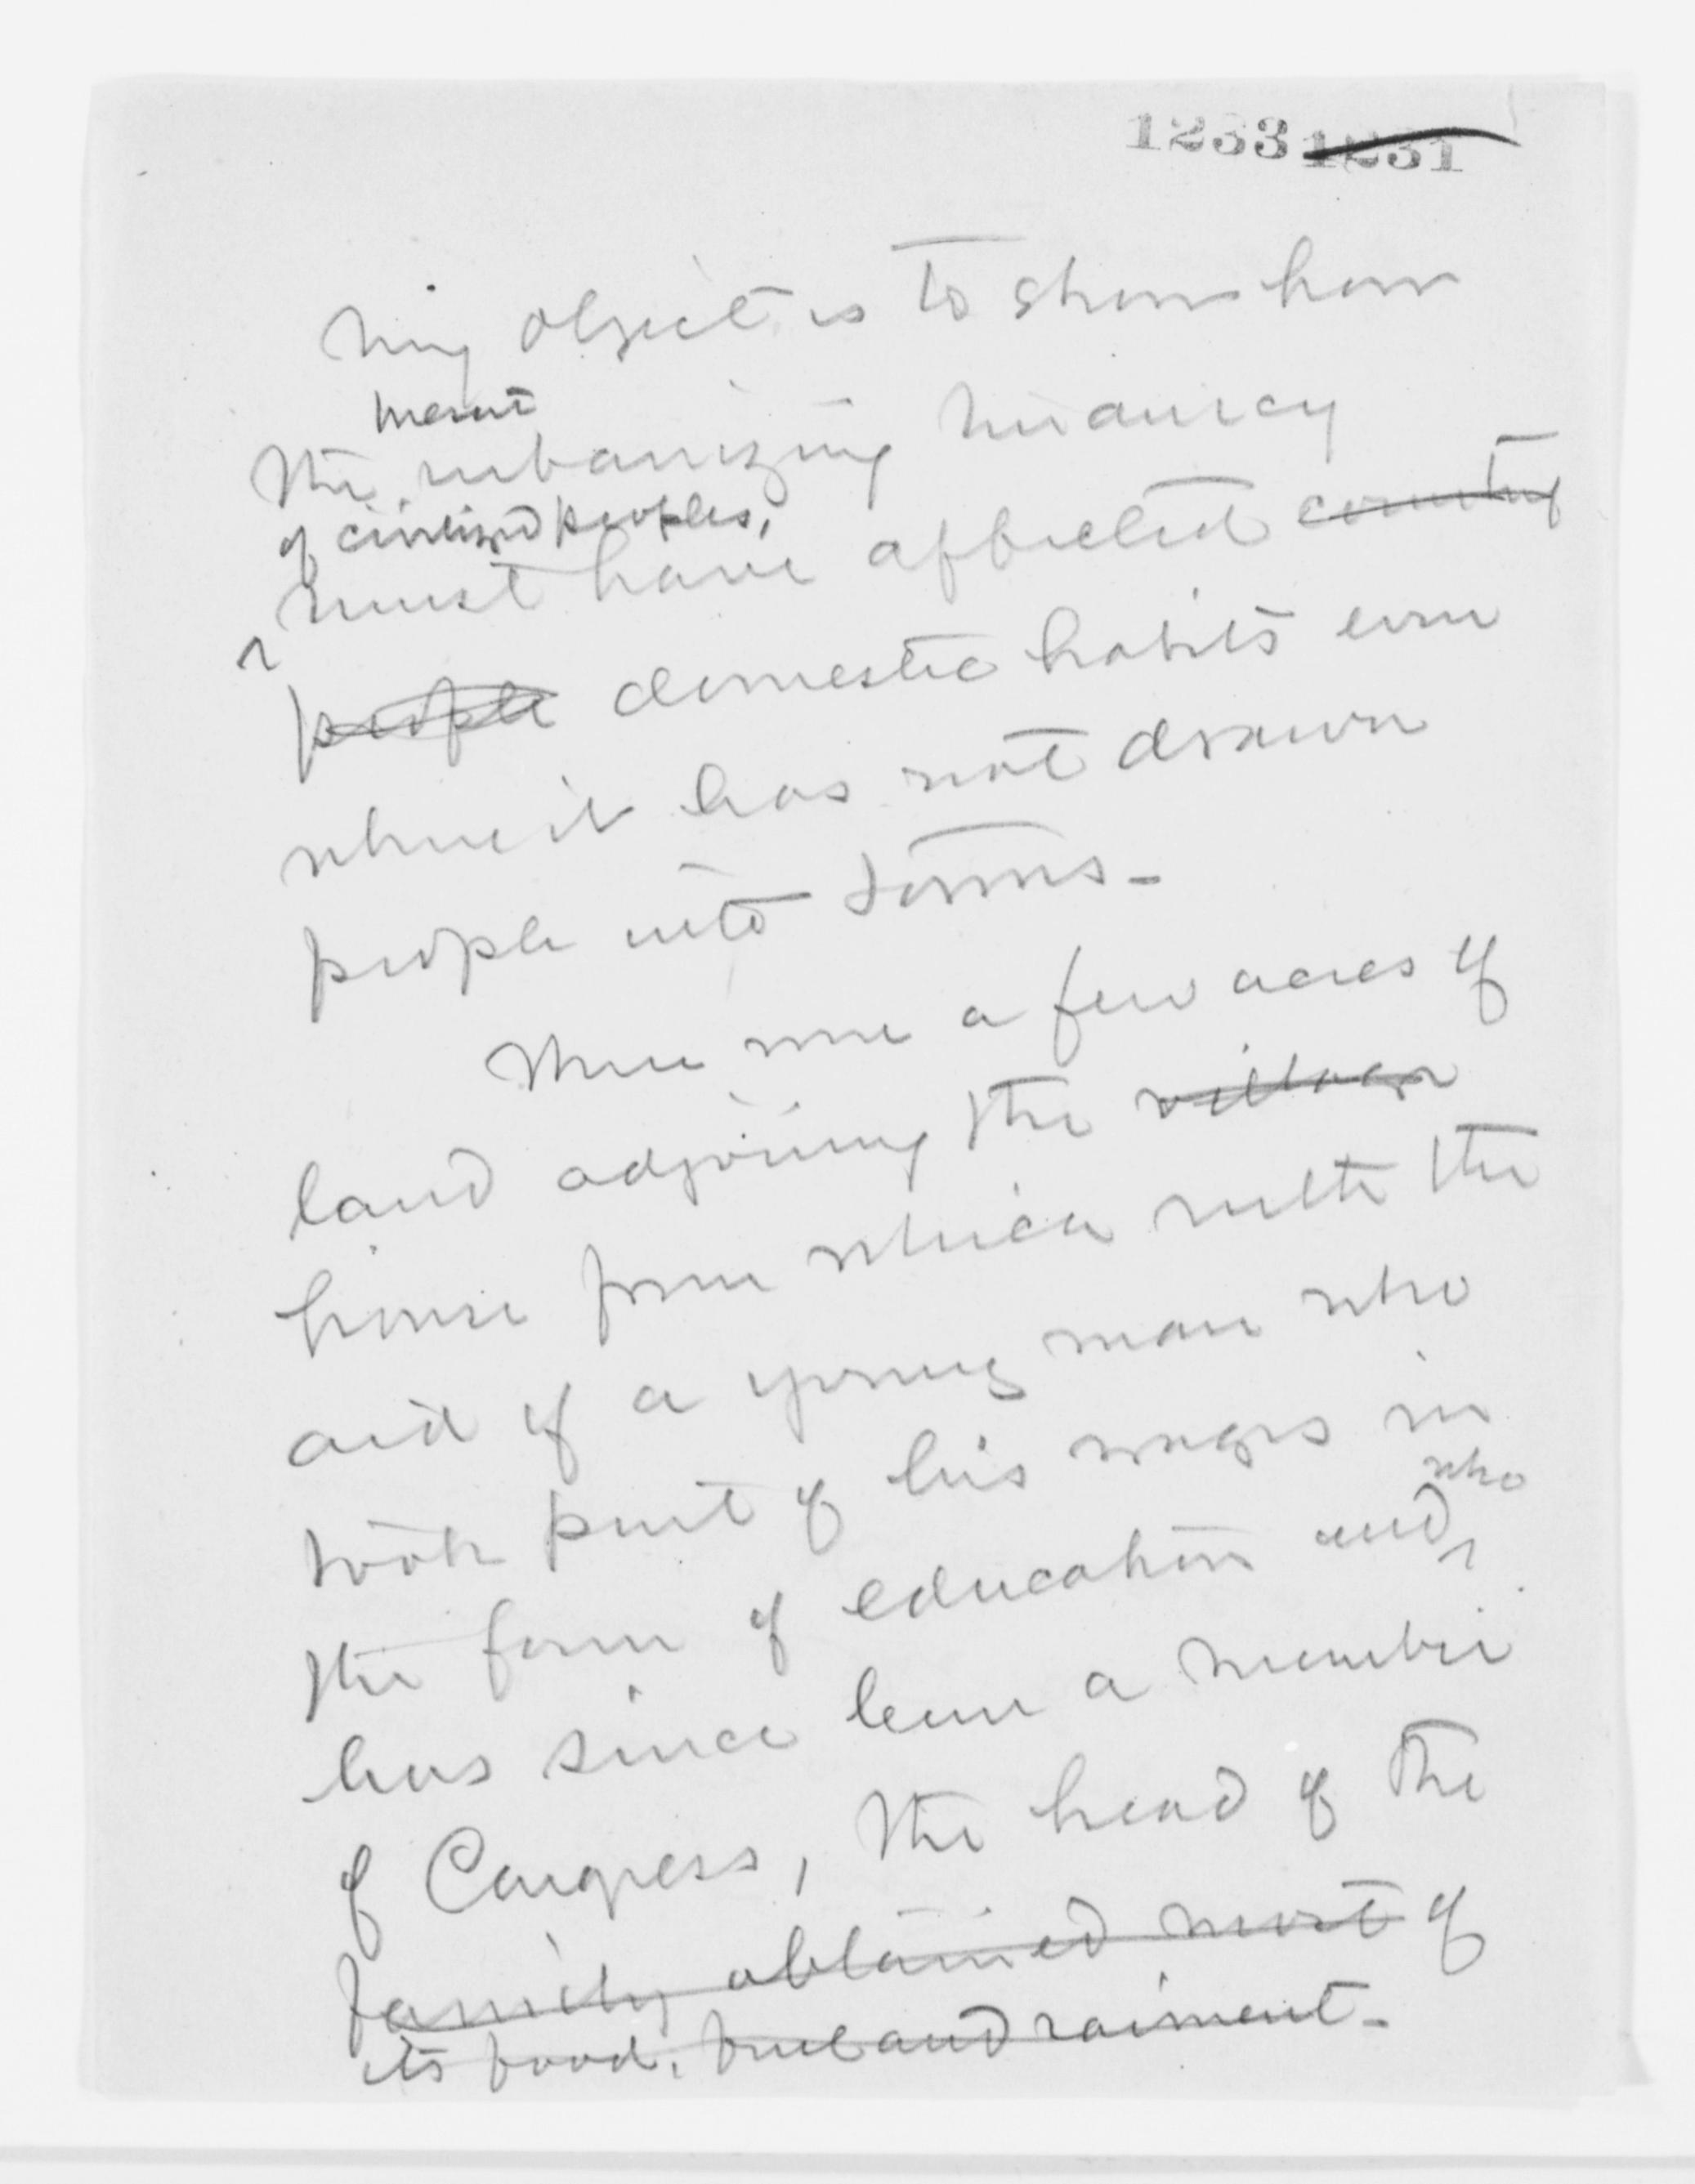 1233 1231
My object is to show how
recent
the urbanizing tendency
of civilized peoples,
must have affected country
people domestic habits even
where it has not drawn
people into towns -
There were a few acres of
land adjoining the village
house from which with the
aid of a young man who
took part of his wages in
who
the form of education and
has since been a member
of Congress, the head of the
family obtained most of
its food, fuel and raiment -